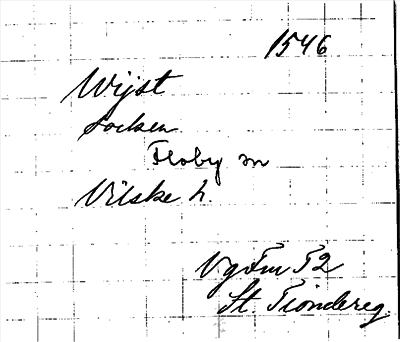 1546
Wijst
socken
Floby sn
Vilske h.
Vg Fm T2
St. Tiondereg.